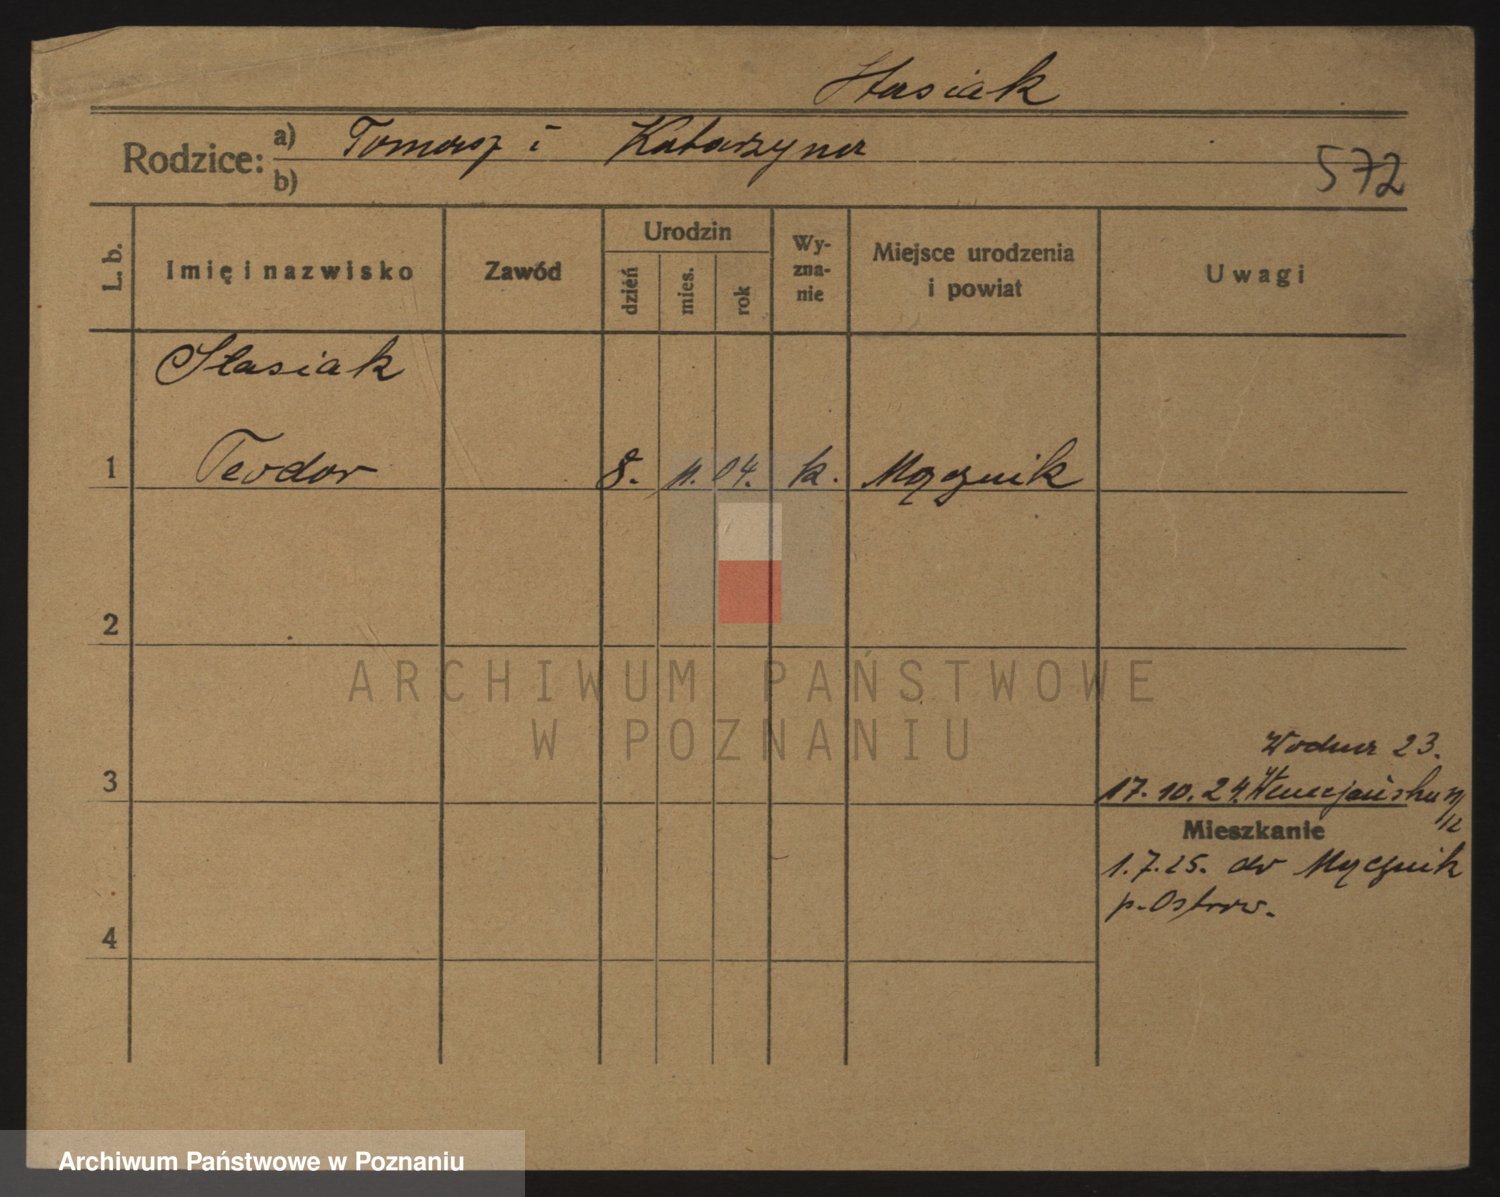 Stasiak
Rodzice: a) Tomasz i Katarzyna
b)
572
L. b.
Imię i nazwisko
Zawód
Urodzin
dzień
mies.
rok
Wy-
zna-
nie
Miejsce urodzenia
i powiat
Uwagi
Stasiak
1 Teodor 8. 11. 04. k. Mącznik
2
ARCHIWUM PAŃSTWOWE
W POZNANIU
Wodna 23.
3
17.10.24.
Mieszkanie
1.7.25. do Mącznik
p. Ostrow.
4
Archiwum Państwowe w Poznaniu